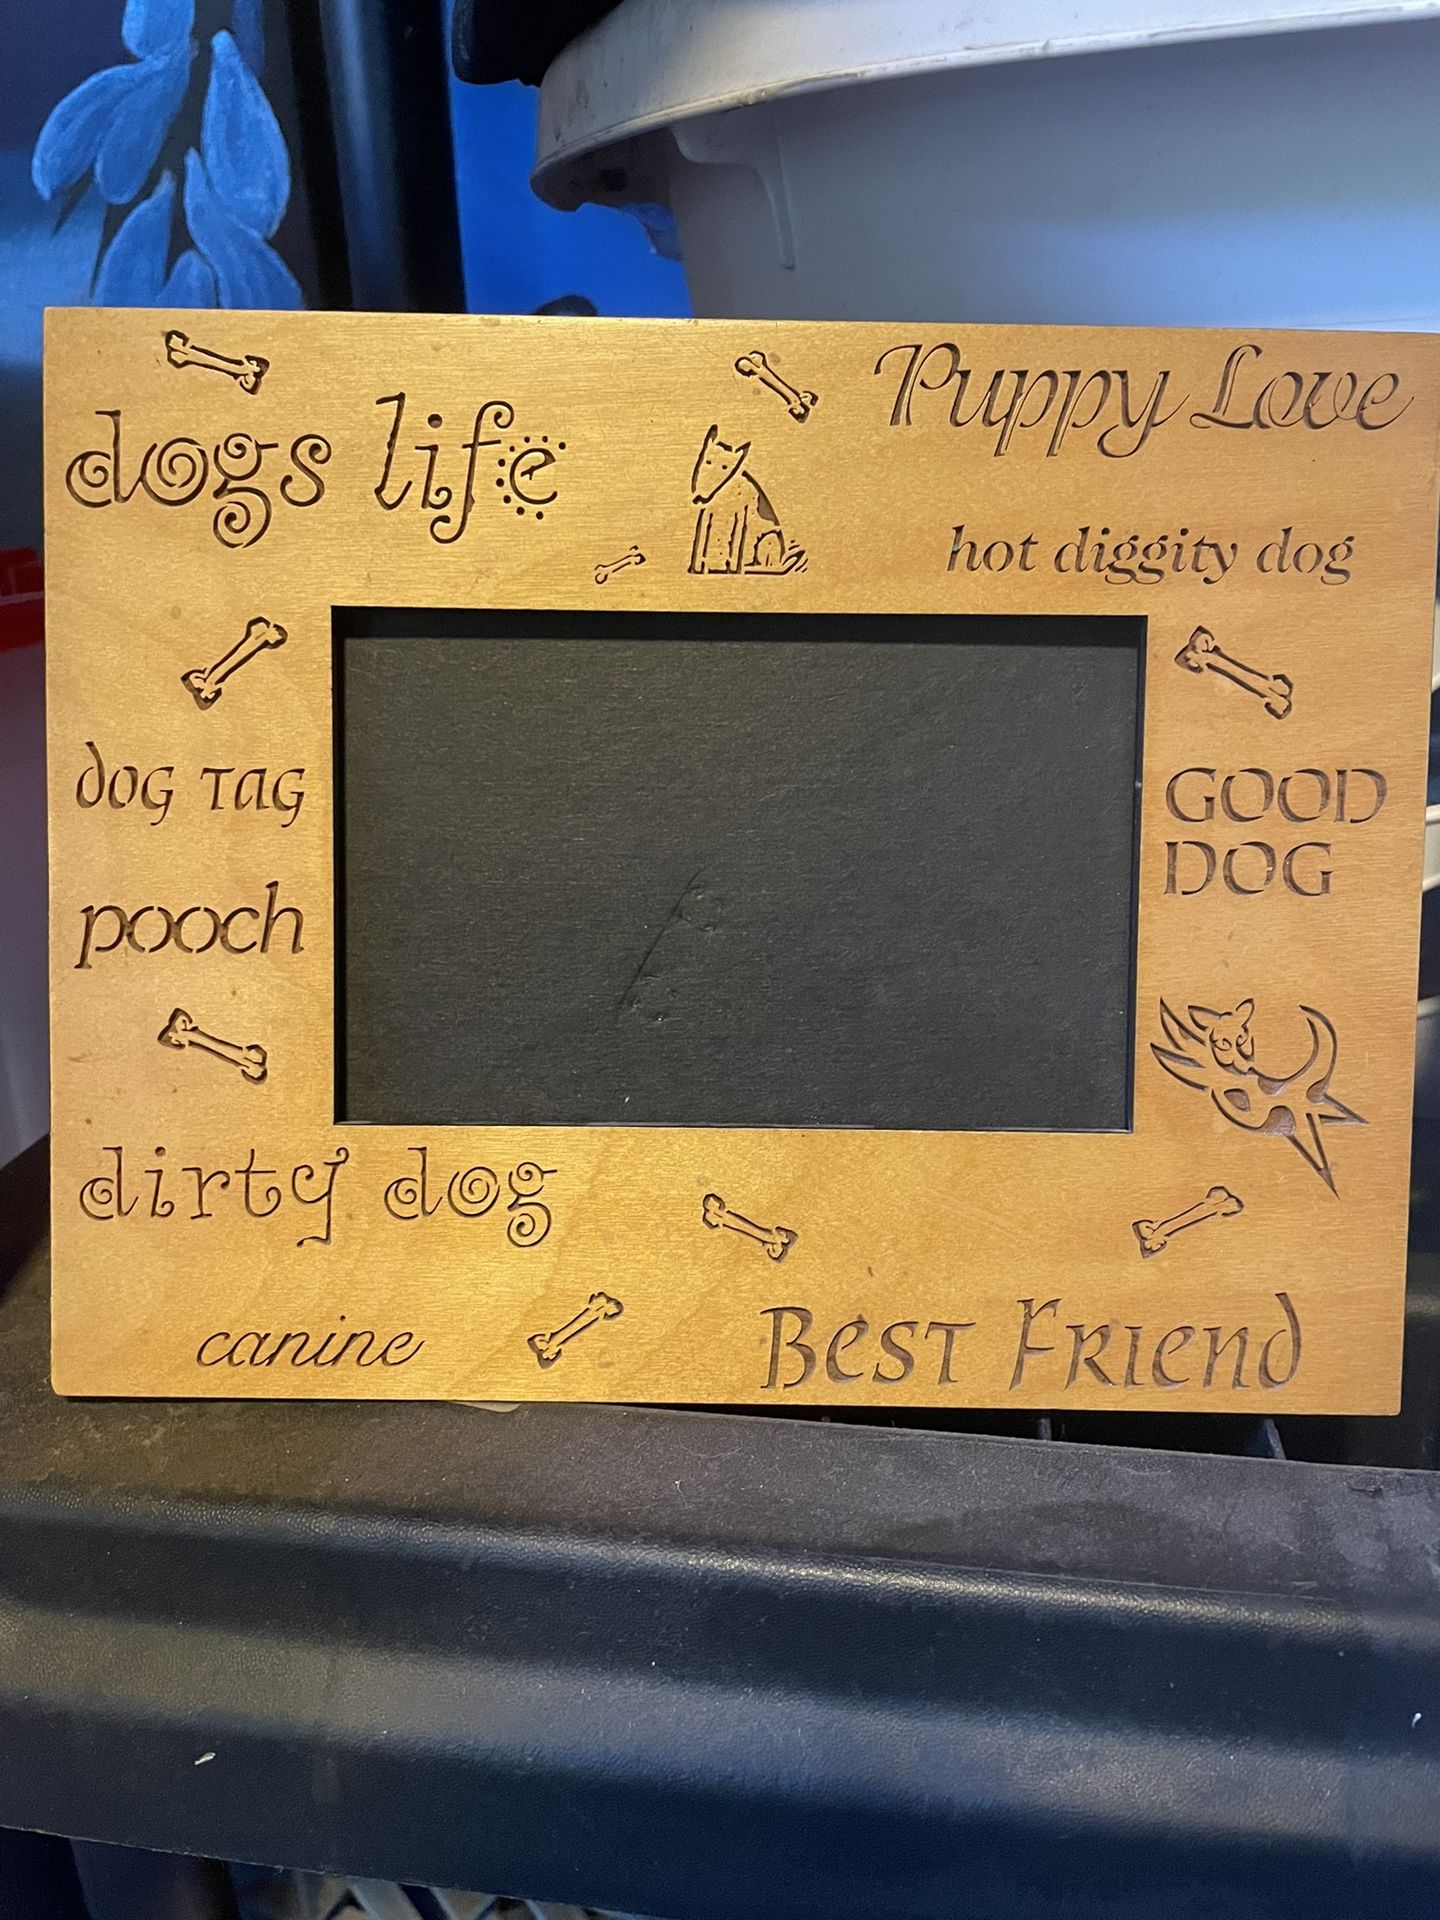 dogs life
Puppy Love
hot diggity dog
dog tag
pooch
GOOD
DOG
dirty dog
canine
Best Friend